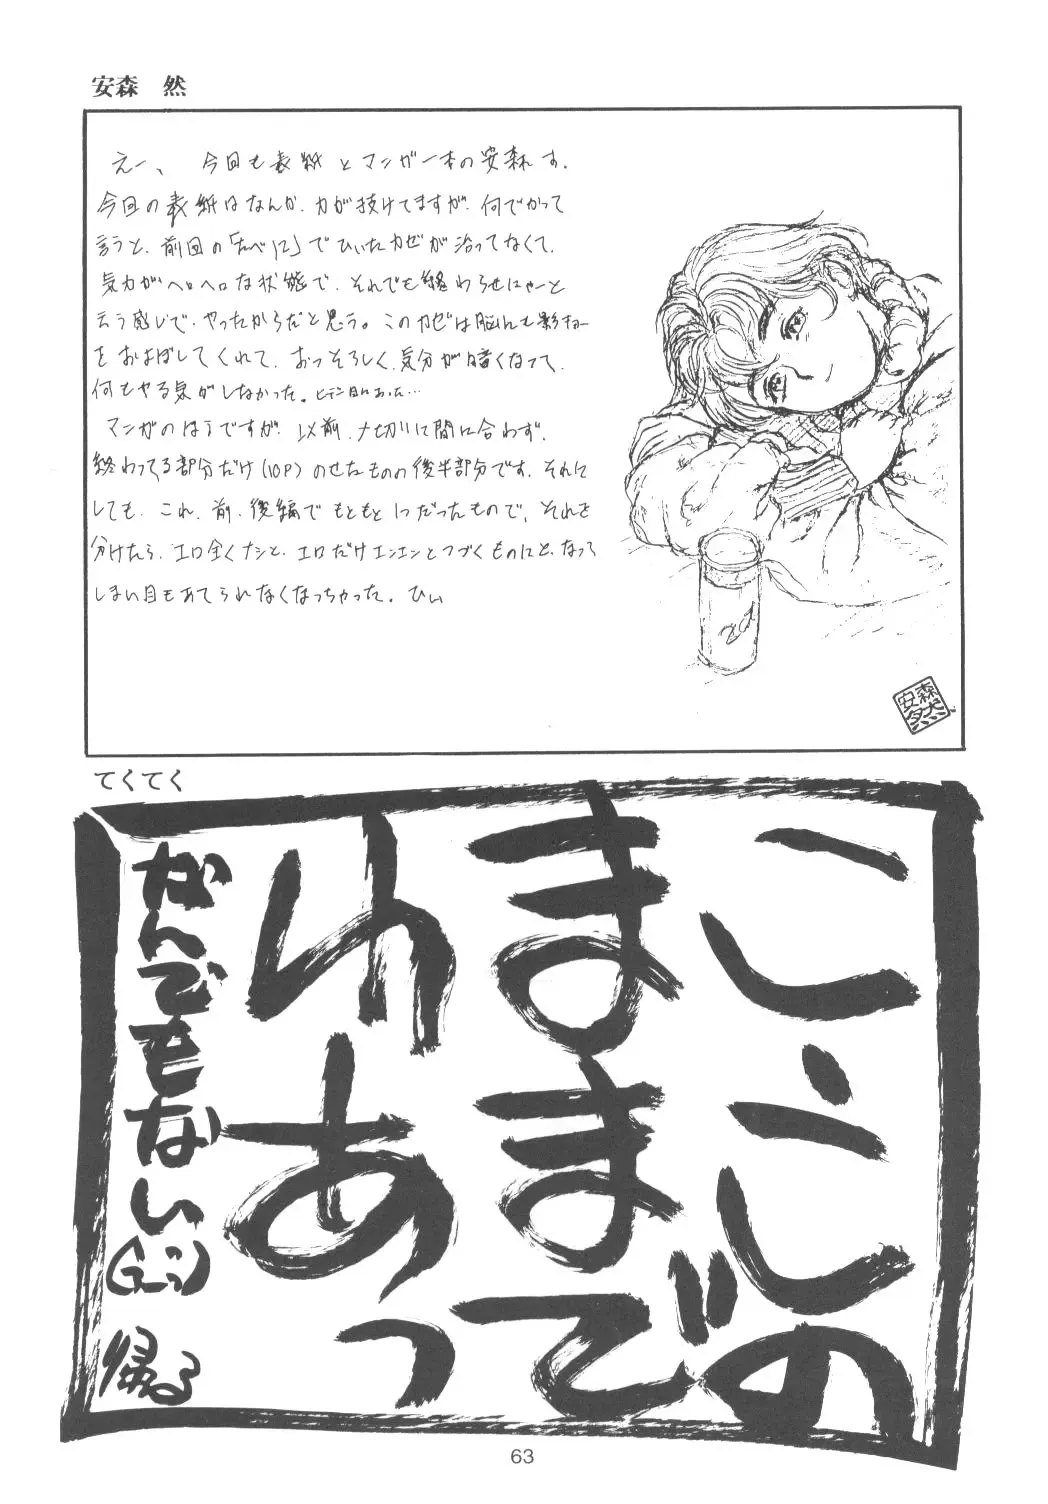 安森　然
えー、今回も表紙とマンガ一本の安森す。
今回の表紙はなんか、力が抜けてますが、何でかって
言うと、前回の「なべ12」でひいたカゼが治ってなくて、
気力がヘロヘロな状態で、それでも終わらせにゃーと
云う感じで、やったからだと思う。このカゼは脳にも影響
をおよぼしてくれて、おっそろしく気分が暗くなって、
何もやる気がしなかった。ヒデー目にあった…
マンガのほうですが、以前、〆切りに間に合わず、
終わってる部分だけ(10P)のせたものの後半部分です。それに
しても、これ、前、後編でもともと1つだったもので、それを
分けたら、エロ全くナシと、エロだけエンエンとつづくものにと、なって
しまい目もあてられなくなっちゃった。ひぃ
24
安森然
てくてく
こうしの
ままで
れあっ
なんでもない
帰る
63